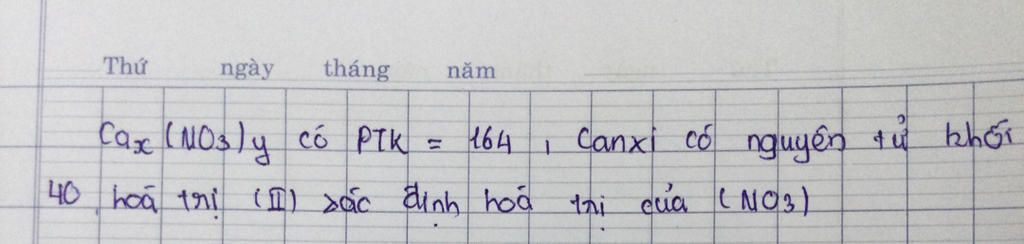 Thứ ngày tháng năm
Cax (NO3)y có PTK = 164, Canxi có nguyên tử khối
40 hoá trị (II) xác định hoá trị của (NO3)